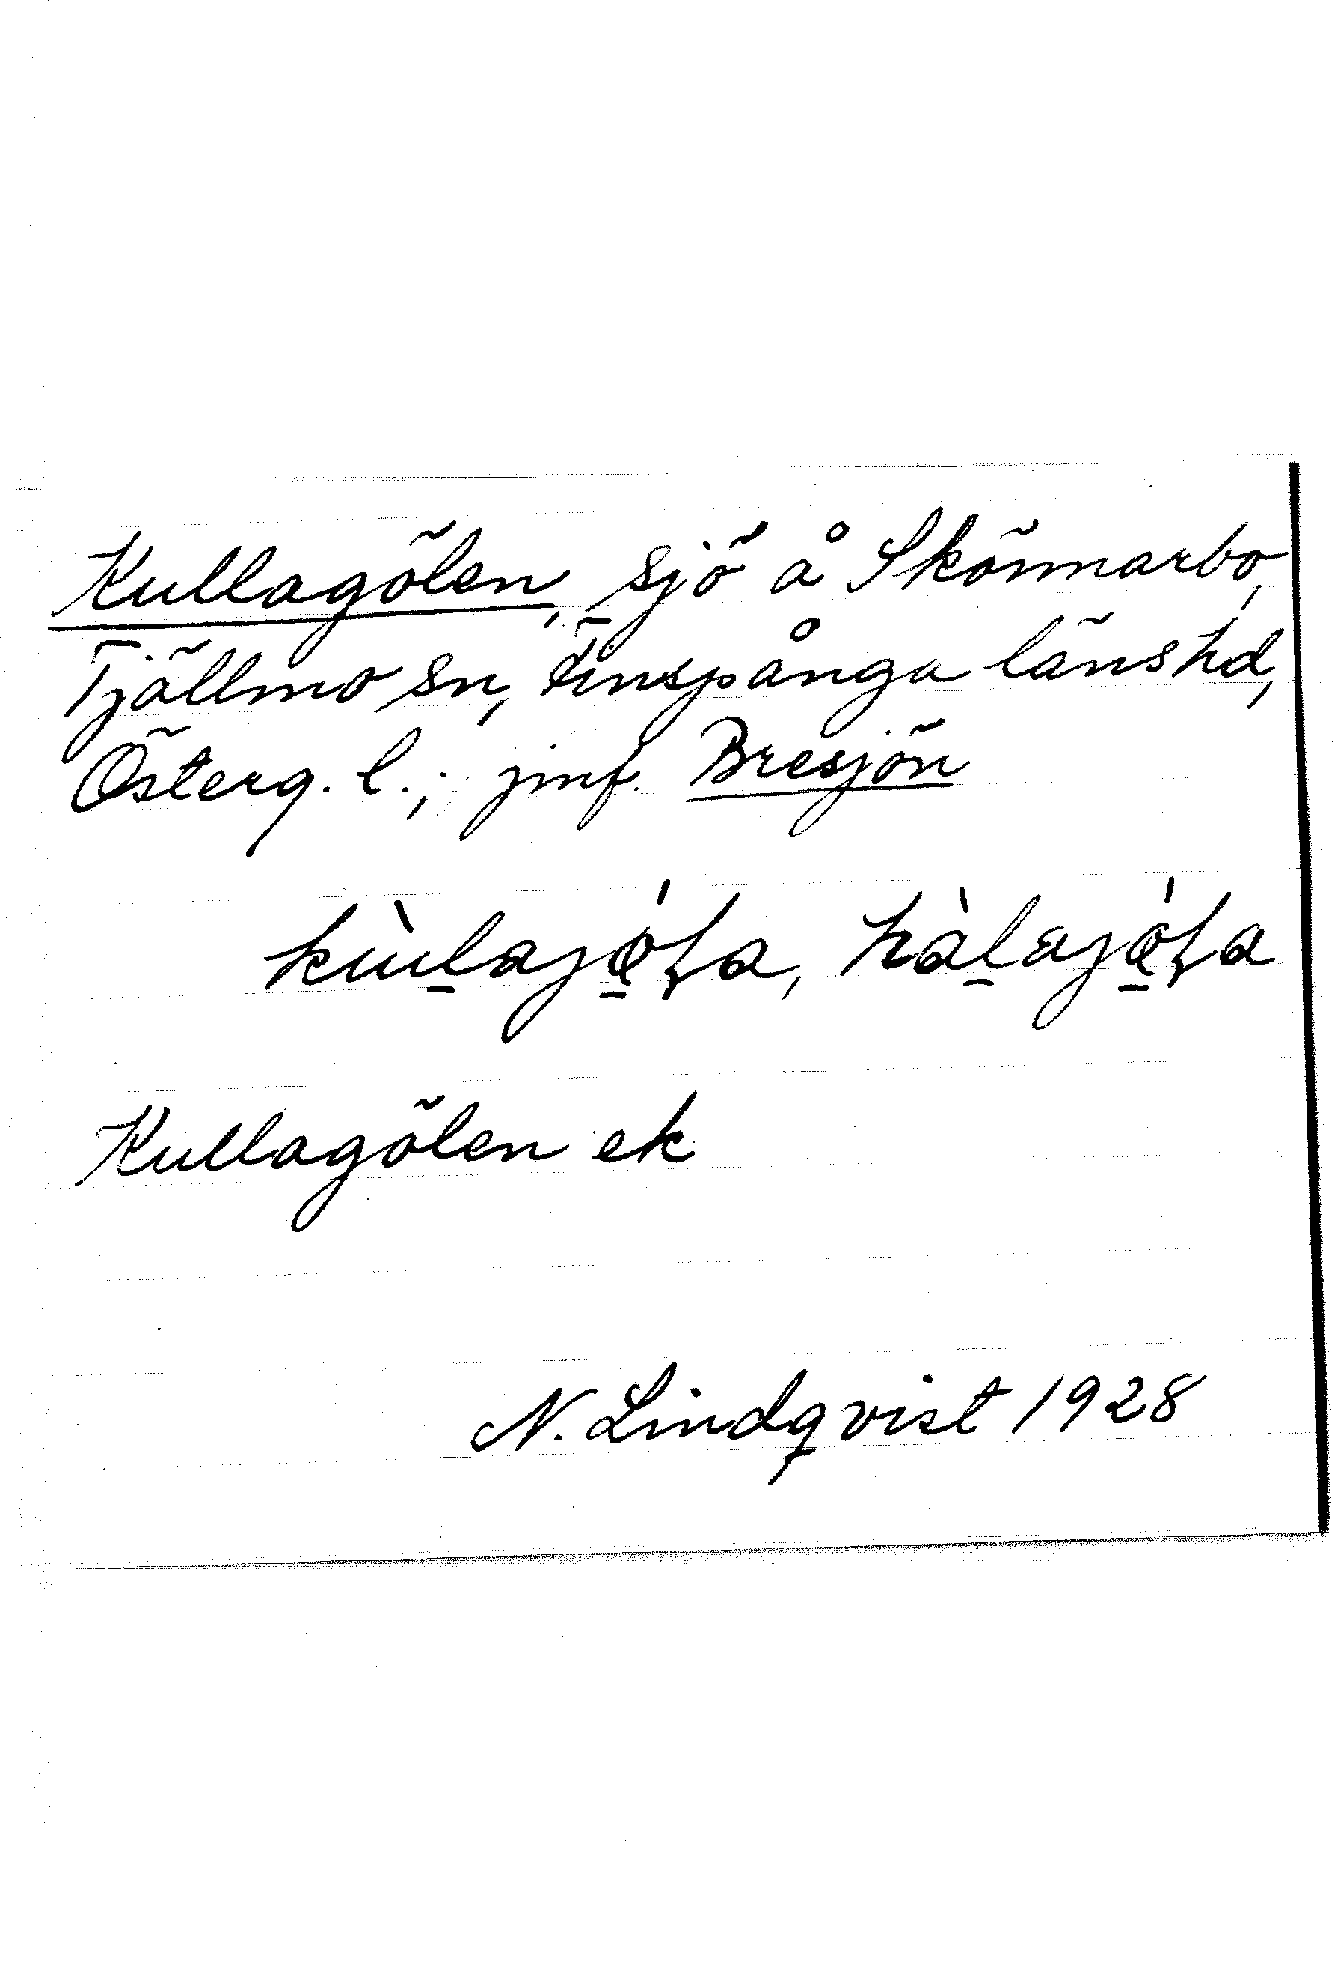 Kullagölen, sjö å Skönnarbo,
Tjällmo sn, Finspånga länshd,
Österg. l.; jmf. Bresjön
Kullagölen ek
N. Lindqvist 1928